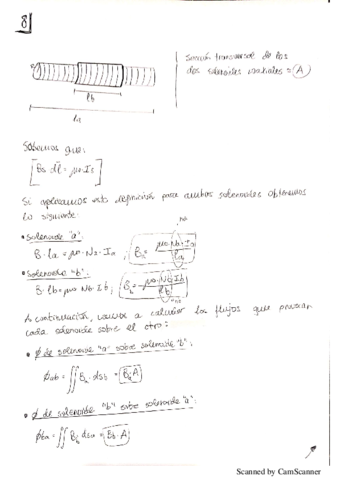 8
Sección transversal de los
dos solenoides circulares = A
lb
la
Sabemos que:
[∮B dl = μo·I]
Si aplicamos esta definición para ambos solenoides obtenemos
lo siguiente:
• Solenoide "a":
B·la = μo·Na·Ia ; Ba = μo·Na·Ia / la
• Solenoide "b":
B·lb = μo Nb Ib ; Bb = μo·Nb·Ib / lb
A continuación, vamos a calcular los flujos que provocan
cada solenoide sobre el otro:
• ϕ de solenoide "a" sobre solenoide "b":
ϕab = ∬ Ba · dsb = Ba A
• ϕ de solenoide "b" sobre solenoide "a":
ϕba = ∬ Bb dsa = Bb·A
Scanned by CamScanner